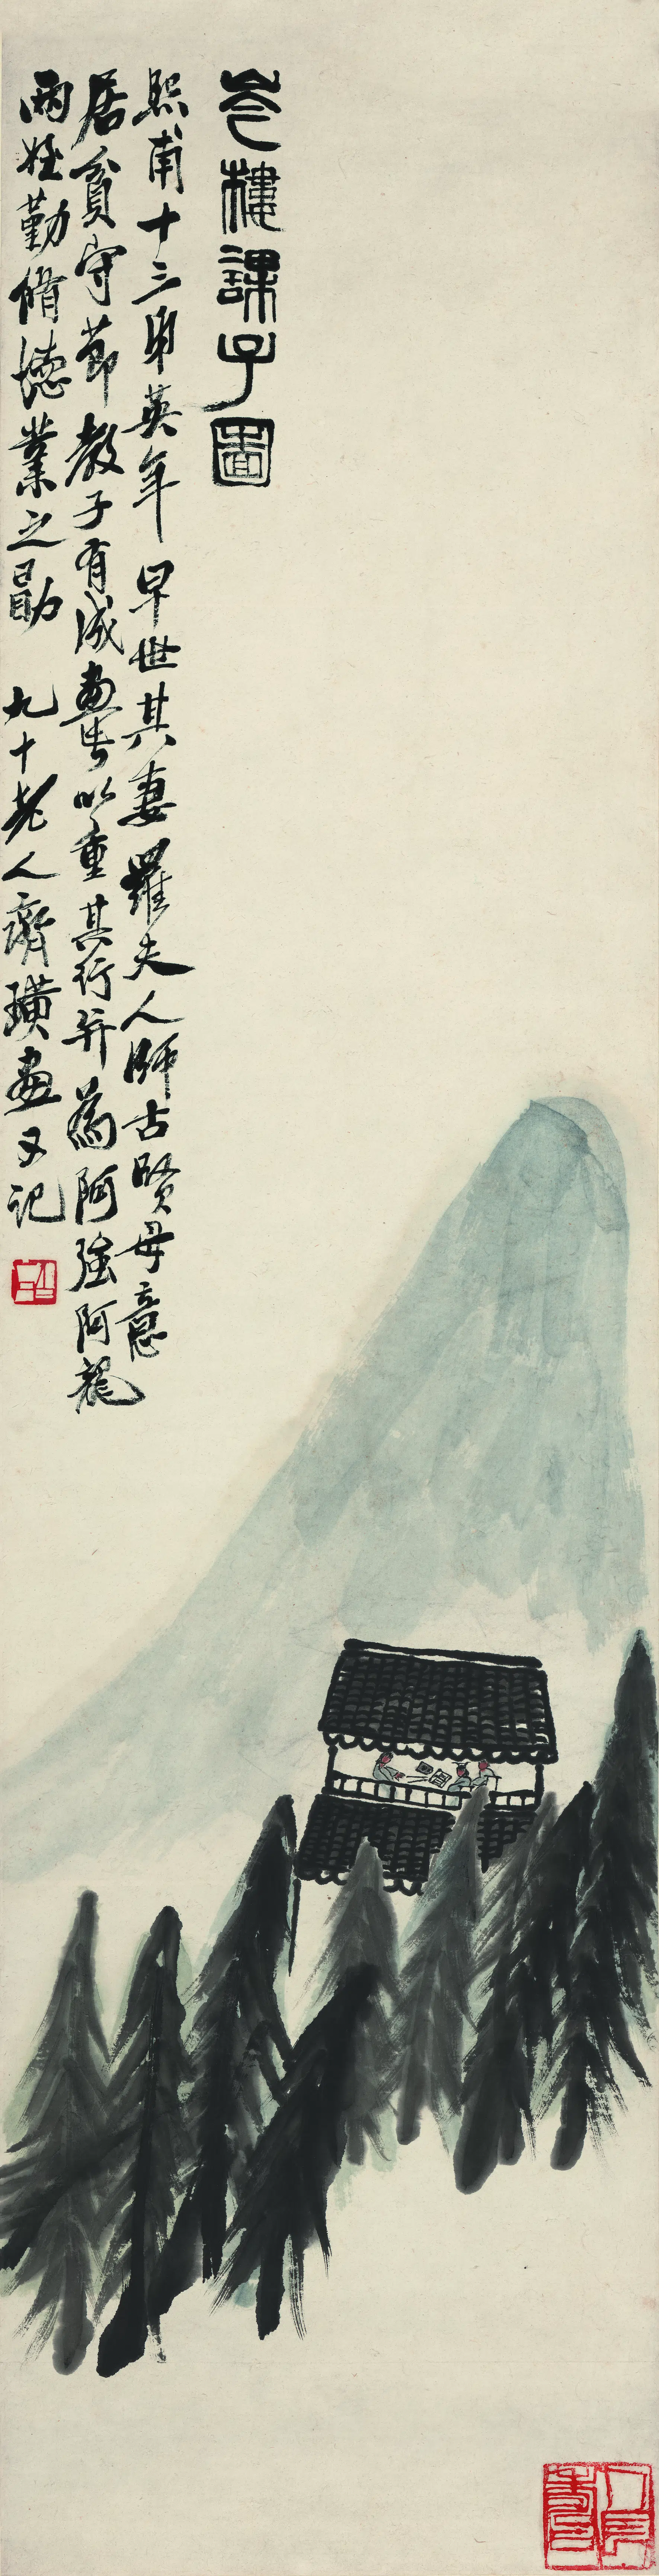 岑樓課子圖
熙甫十三弟英年早世其妻羅夫人師古賢母意
居貧守節教子有成畫此以重其行并為阿強阿龍
兩姪勤脩德業之勖 九十老人齊璜畫又記
白石
人長壽